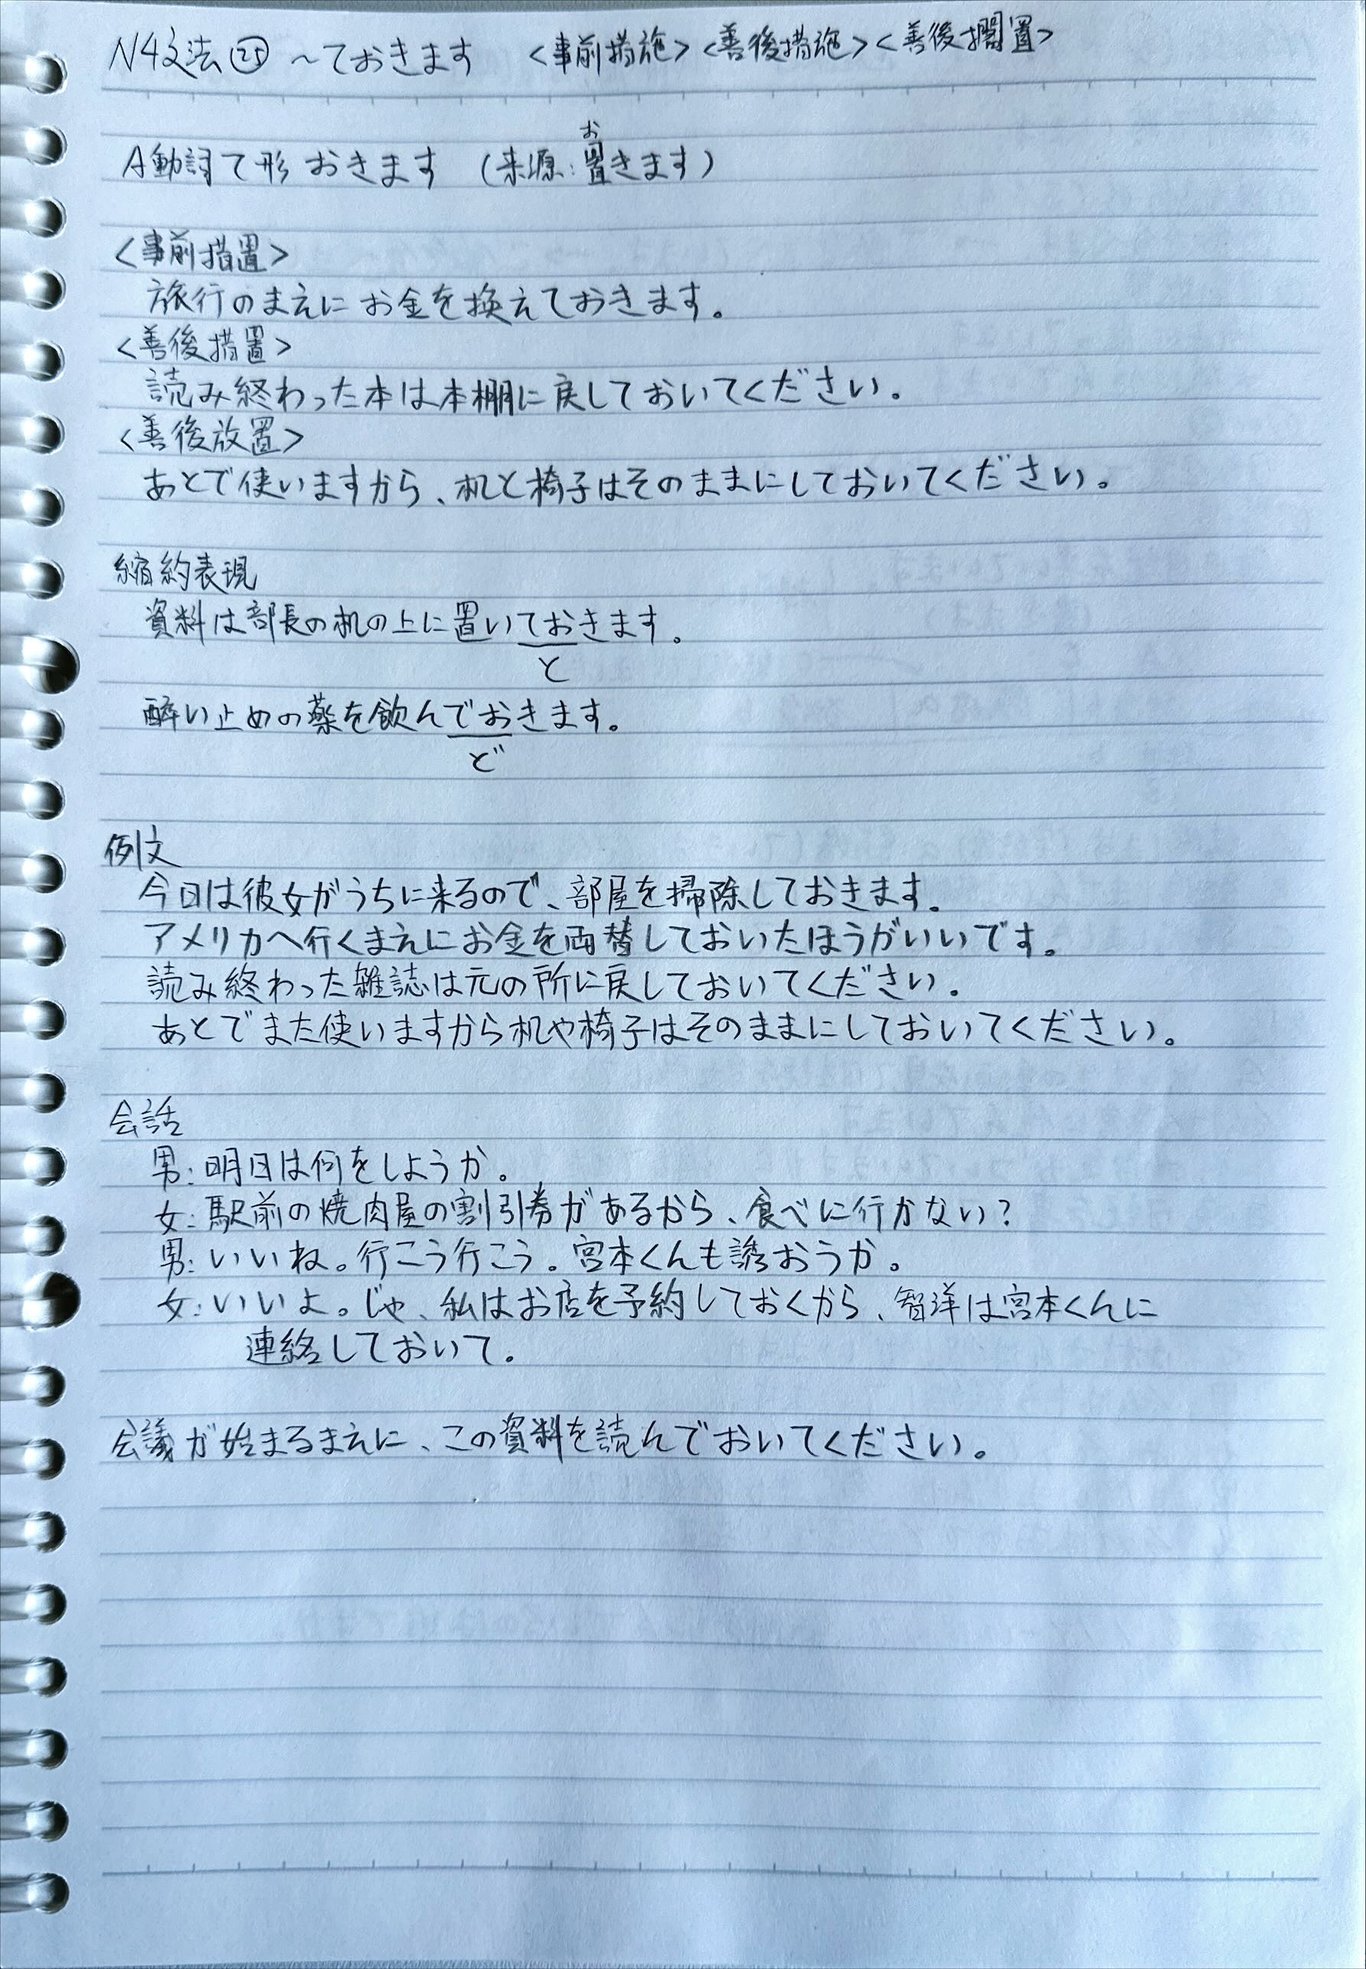 N4文法㉕ ～ておきます <事前措施><善後措施><善後擱置>
A動詞て形おきます (来源:置きます)
お
<事前措置>
旅行のまえにお金を換えておきます。
<善後措置>
読み終わった本は本棚に戻しておいてください。
<善後放置>
あとで使いますから、机と椅子はそのままにしておいてください。
縮約表現
資料は部長の机の上に置いておきます。
と
酔い止めの薬を飲んでおきます。
ど
例文
今日は彼女がうちに来るので、部屋を掃除しておきます。
アメリカへ行くまえにお金を両替しておいたほうがいいです。
読み終わった雑誌は元の所に戻しておいてください。
あとでまた使いますから机や椅子はそのままにしておいてください。
会話
男:明日は何をしようか。
女:駅前の焼肉屋の割引券があるから、食べに行かない?
男:いいね。行こう行こう。宮本くんも誘おうか。
女:いいよ。じゃ、私はお店を予約しておくから、智洋は宮本くんに
連絡しておいて。
会議が始まるまえに、この資料を読んでおいてください。